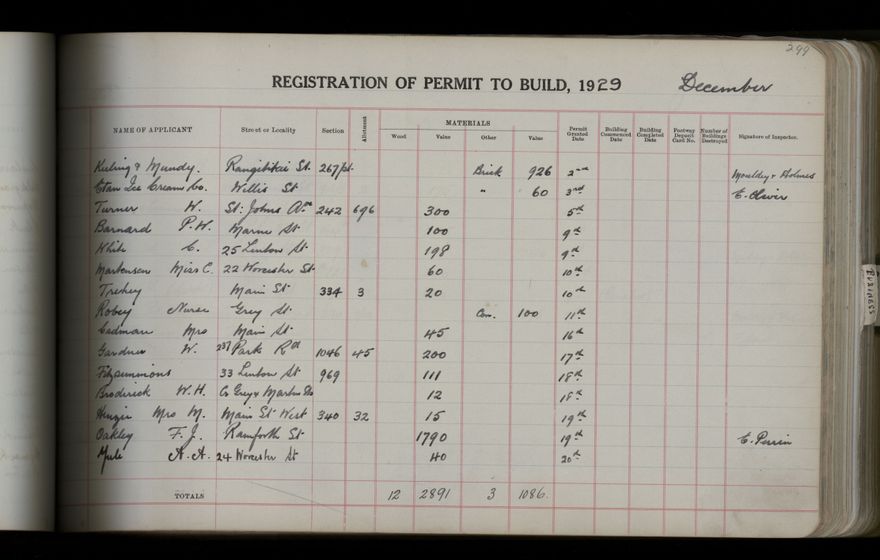 299
REGISTRATION OF PERMIT TO BUILD, 1929 December
MATERIALS
NAME OF APPLICANT Street or Locality Section Allotment Wood Value Other Value Permit Granted Date Building Commenced Date Building Completed Date Footway Deposit Card No. Number of Buildings Destroyed Signature of Inspector.
Keiling & Mundy. Rangitikei St. 267/pt. Brick 926 2nd Mouldey & Holmes
Etam Ice Cream Co. Willis St " 60 3rd E. Oliver
Turner W. St: Johns Av. 242 696 300 5th
Barnard P.W. Marne St 100 9th
White C. 25 Linton St 198 9th
Martensen Miss C. 22 Worcester St 60 10th
Main St 334 3 20 10th
Robey Nurse Grey St Con. 100 11th
Cadman Mrs Main St 45 16th
Gardner W. 237 Park Rd 1046 45 200 17th
Fitzsimmons 33 Linton St 969 111 18th
Broderick W.H. Co Grey & Martin Sts 12 18th
Mrs M. Main St West 340 32 15 19th
Oakley F. J. Rainforth St 1790 19th E. Perrin
A. A. 24 Worcester St 40 20th
TOTALS 12 2891 3 1086.